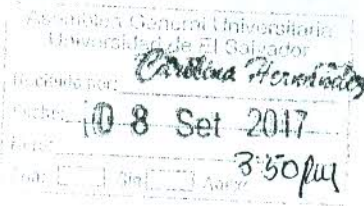 Asamblea General Universitaria
Universidad de El Salvador
Recibido por: Carolina Hernández
Fecha: 08 Set 2017
Hora: 3:50 pm